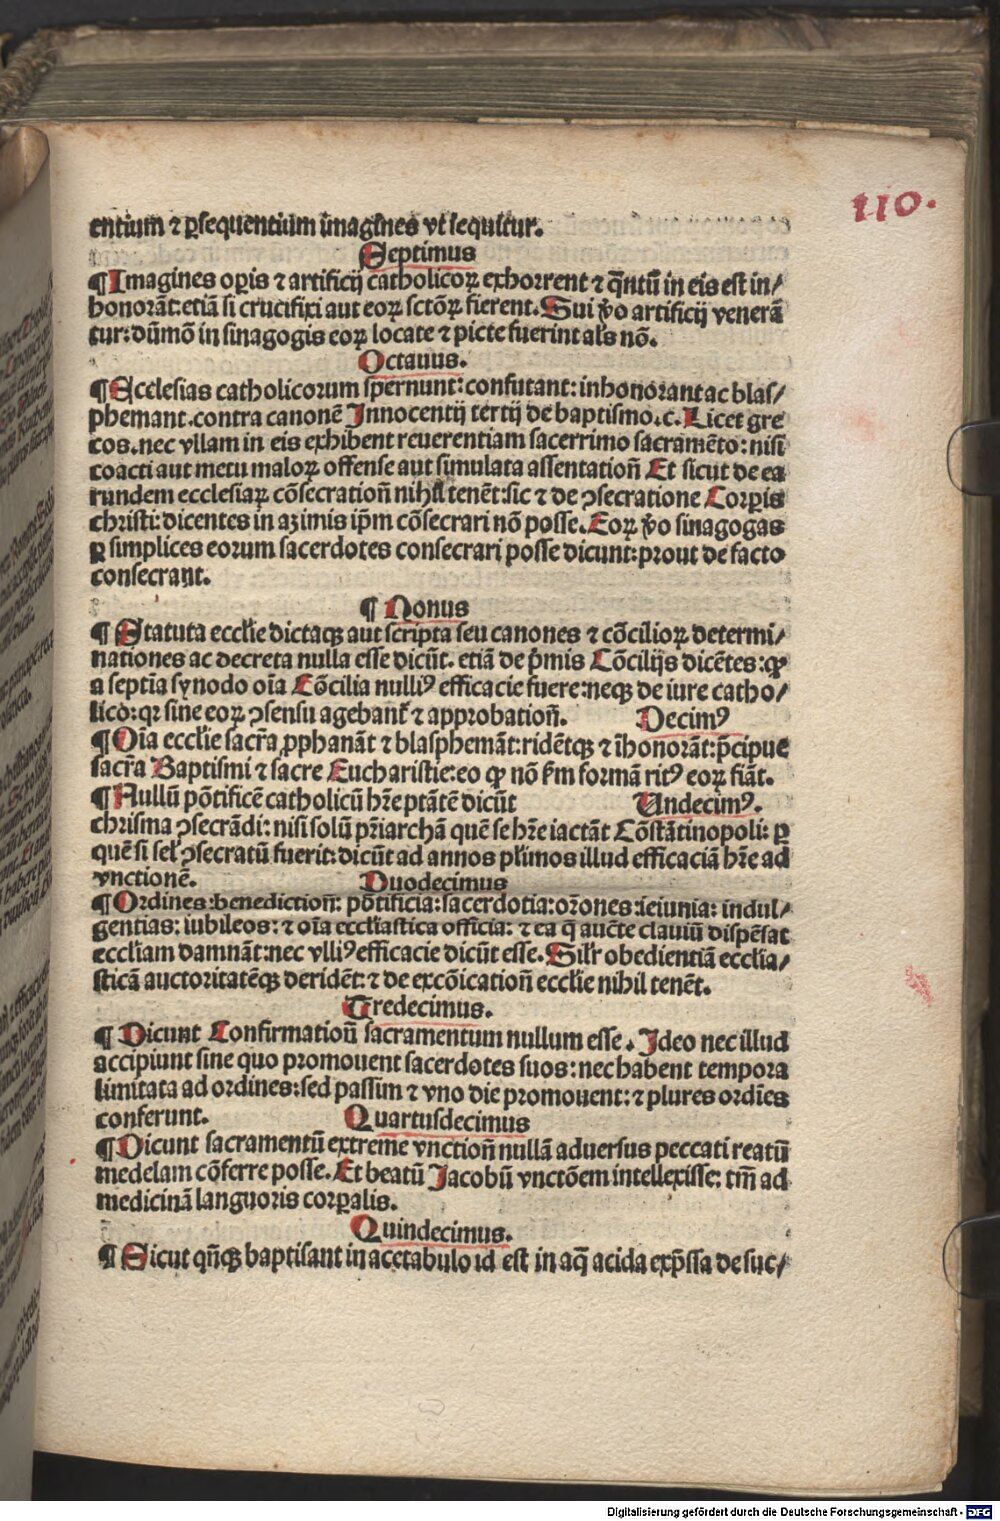 110.
entium ⁊ ꝑsequentium imagines vt sequitur.
Septimus
¶ Imagines oꝑis ⁊ artificij catholicoꝝ exhorrent ⁊ q̃ntũ in eis est in/
honorãt: etiã si crucifixi aut eoꝝ sctõꝝ fierent. Sui ꝟo artificij venerã
tur: dũmõ in sinagogis eoꝝ locate ⁊ picte fuerint als nõ.
Octauus.
¶ Ecclesias catholicorum spernunt: confutant: inhonorant ac blas/
phemant. contra canonẽ Innocentij tertij de baptismo. c. Licet gre
cos. nec vllam in eis exhibent reuerentiam sacerrimo sacramẽto: nisi
coacti aut metu maloꝝ offense aut simulata assentatioñ Et sicut de ea
rundem ecclesiaꝝ cõsecratioñ nihil tenẽt: sic ⁊ de ↄsecratione Corꝑis
christi: dicentes in azimis ip̃m cõsecrari nõ posse. Eoꝝ ꝟo sinagogas
ꝑ simplices eorum sacerdotes consecrari posse dicunt: prout de facto
consecrant.
¶ Nonus
¶ Statuta eccl̃ie dictaqꝫ aut scripta seu canones ⁊ cõcilioꝝ determi/
nationes ac decreta nulla esse dicũt. etiã de p̃mis Cõcilijs dicẽtes: ꝙ
a septĩa synodo oĩa Cõcilia nulliꝰ efficacie fuere: neqꝫ de iure catho/
lico: qꝛ sine eoꝝ ↄsensu agebant̃ ⁊ approbatioñ. Decimꝰ
¶ Oĩa eccl̃ie sacr̃a ꝓphanãt ⁊ blasphemãt: ridẽtqꝫ ⁊ ĩhonorãt: p̃cipue
sacr̃a Baptismi ⁊ sacre Eucharistie: eo ꝙ nõ f̃m formã ritꝰ eoꝝ fiãt.
¶ Nullũ põtificẽ catholicũ hr̃e ptãtẽ dicũt Undecimꝰ.
chrisma ↄsecrãdi: nisi solũ pr̃iarchã quẽ se hr̃e iactãt Cõstãtinopoli: ꝑ
quẽ si sel̃ ↄsecratũ fuerit: dicũt ad annos pl̃imos illud efficaciã hr̃e ad
vnctionẽ. Duodecimus
¶ Ordines: benedictioñ: põtificia: sacerdotia: or̃ones: ieiunia: indul/
gentias: iubileos: ⁊ oĩa eccl̃iastica officia: ⁊ ea q̃ aucte clauiũ dispẽsat
eccl̃iam damnãt: nec vlliꝰ efficacie dicũt esse. Sil̃r obedientiã eccl̃ia/
sticã auctoritatẽqꝫ deridẽt: ⁊ de excõicatioñ eccl̃ie nihil tenẽt.
Tredecimus.
¶ Dicunt Confirmatioñ sacramentum nullum esse. Ideo nec illud
accipiunt sine quo promouent sacerdotes suos: nec habent tempora
limitata ad ordines: sed passim ⁊ vno die promouent: ⁊ plures ordĩes
conferunt. Quartusdecimus
¶ Dicunt sacramentũ extreme vnctioñ nullã aduersus peccati reatũ
medelam cõferre posse. Et beatũ Jacobũ vnctõem intellexisse: tm̃ ad
medicinã languoris corꝑalis.
Quindecimus.
¶ Sicut qñqꝫ baptisant in acetabulo id est in aq̃ acida exp̃ssa de suc/
Digitalisierung gefördert durch die Deutsche Forschungsgemeinschaft - DFG